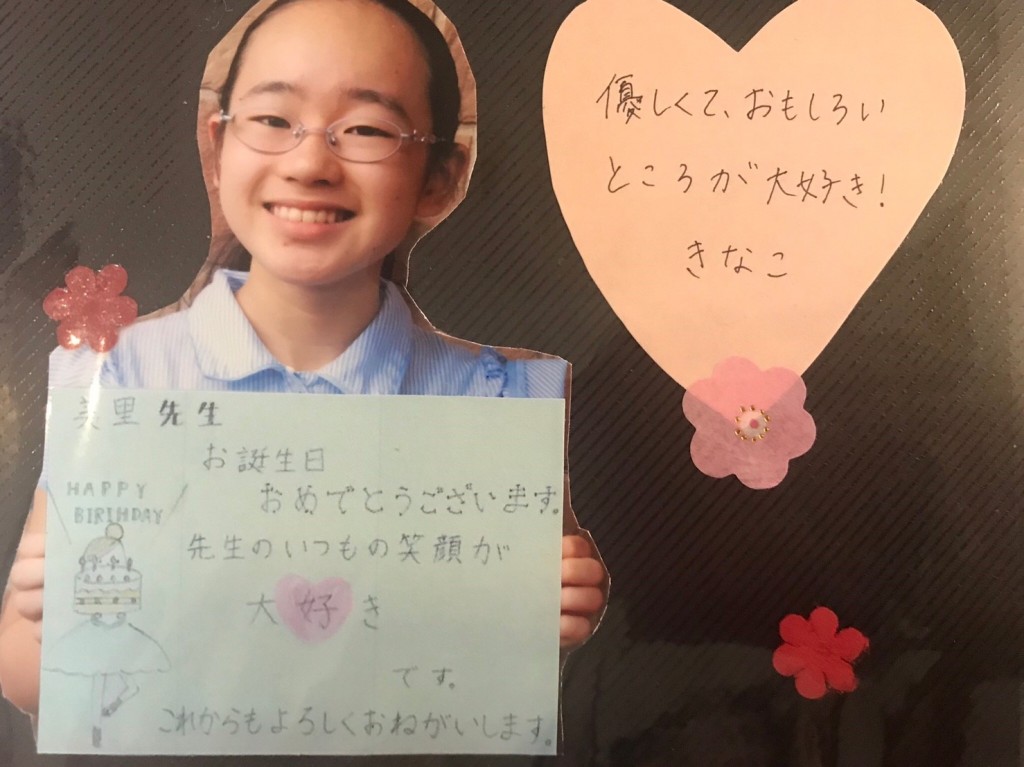 優しくて、おもしろい
ところが大好き!
きなこ
美里先生
お誕生日
おめでとうございます。
HAPPY
BIRTHDAY
先生のいつもの笑顔が
大好き
です。
これからもよろしくおねがいします。